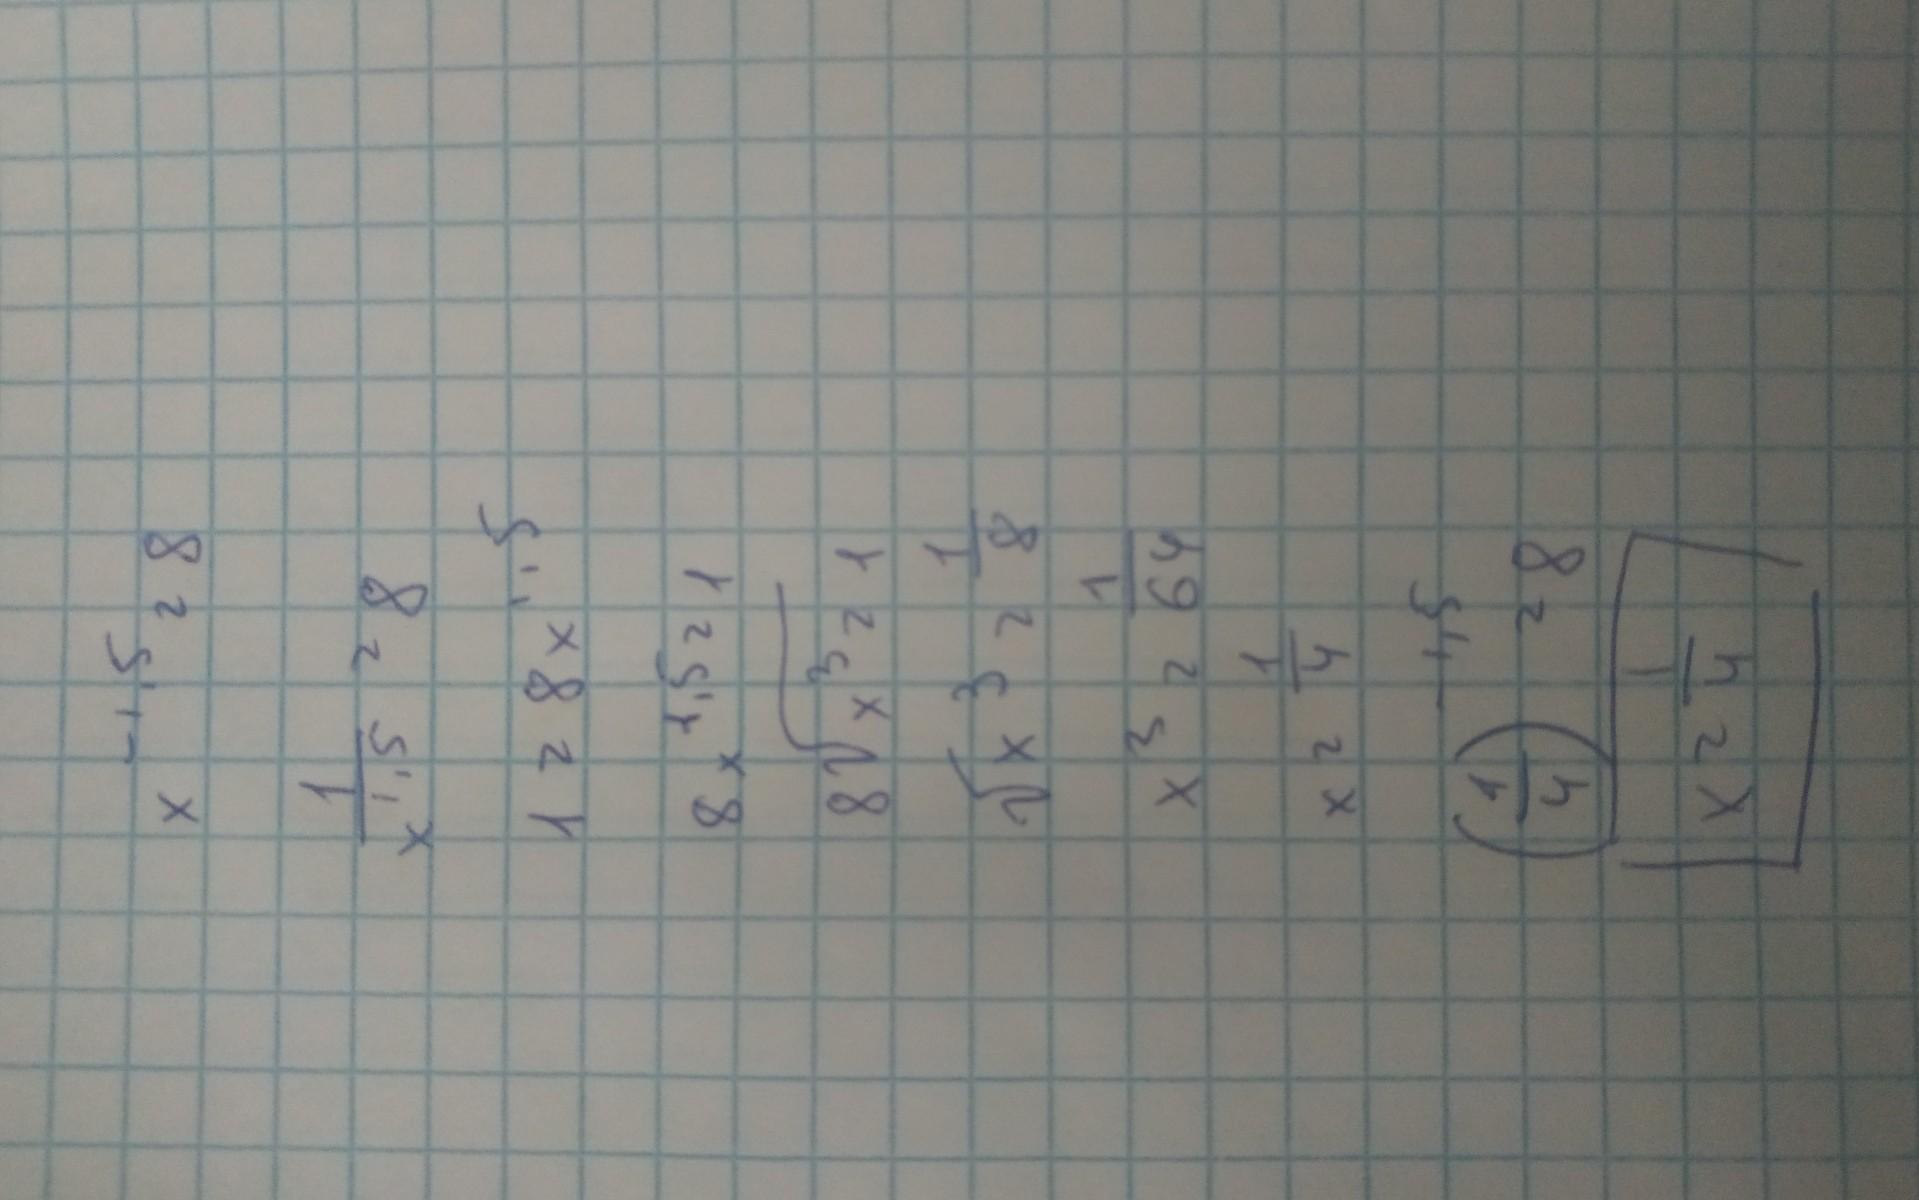 x^{-1,5} = 8
\frac{1}{x^{1,5}} = 8
1 = 8x^{1,5}
8x^{1,5} = 1
8\sqrt{x^3} = 1
\sqrt{x^3} = \frac{1}{8}
x^3 = \frac{1}{64}
x = \frac{1}{4}
(\frac{1}{4})^{-1,5} = 8
x = \frac{1}{4}